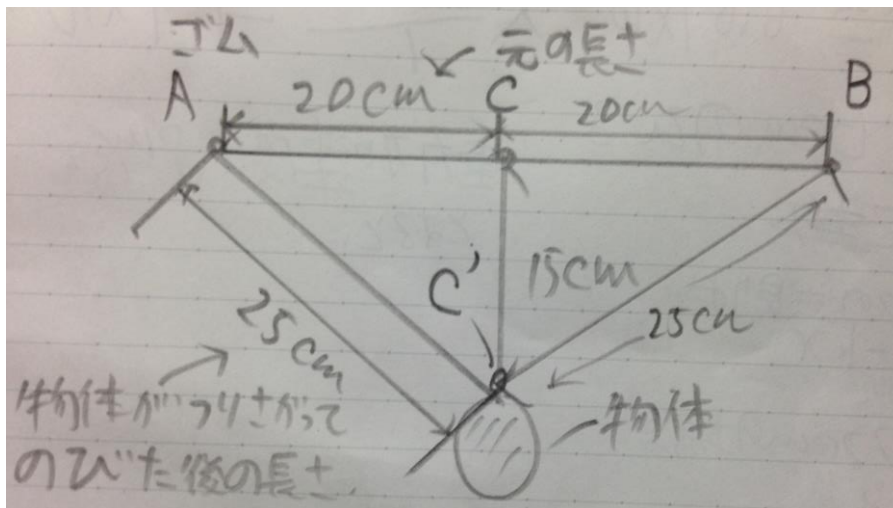 ゴム
元の長さ
A
20cm
C
20cm
B
C'
15cm
25cm
25cm
物体がつりさがって
のびた後の長さ
物体